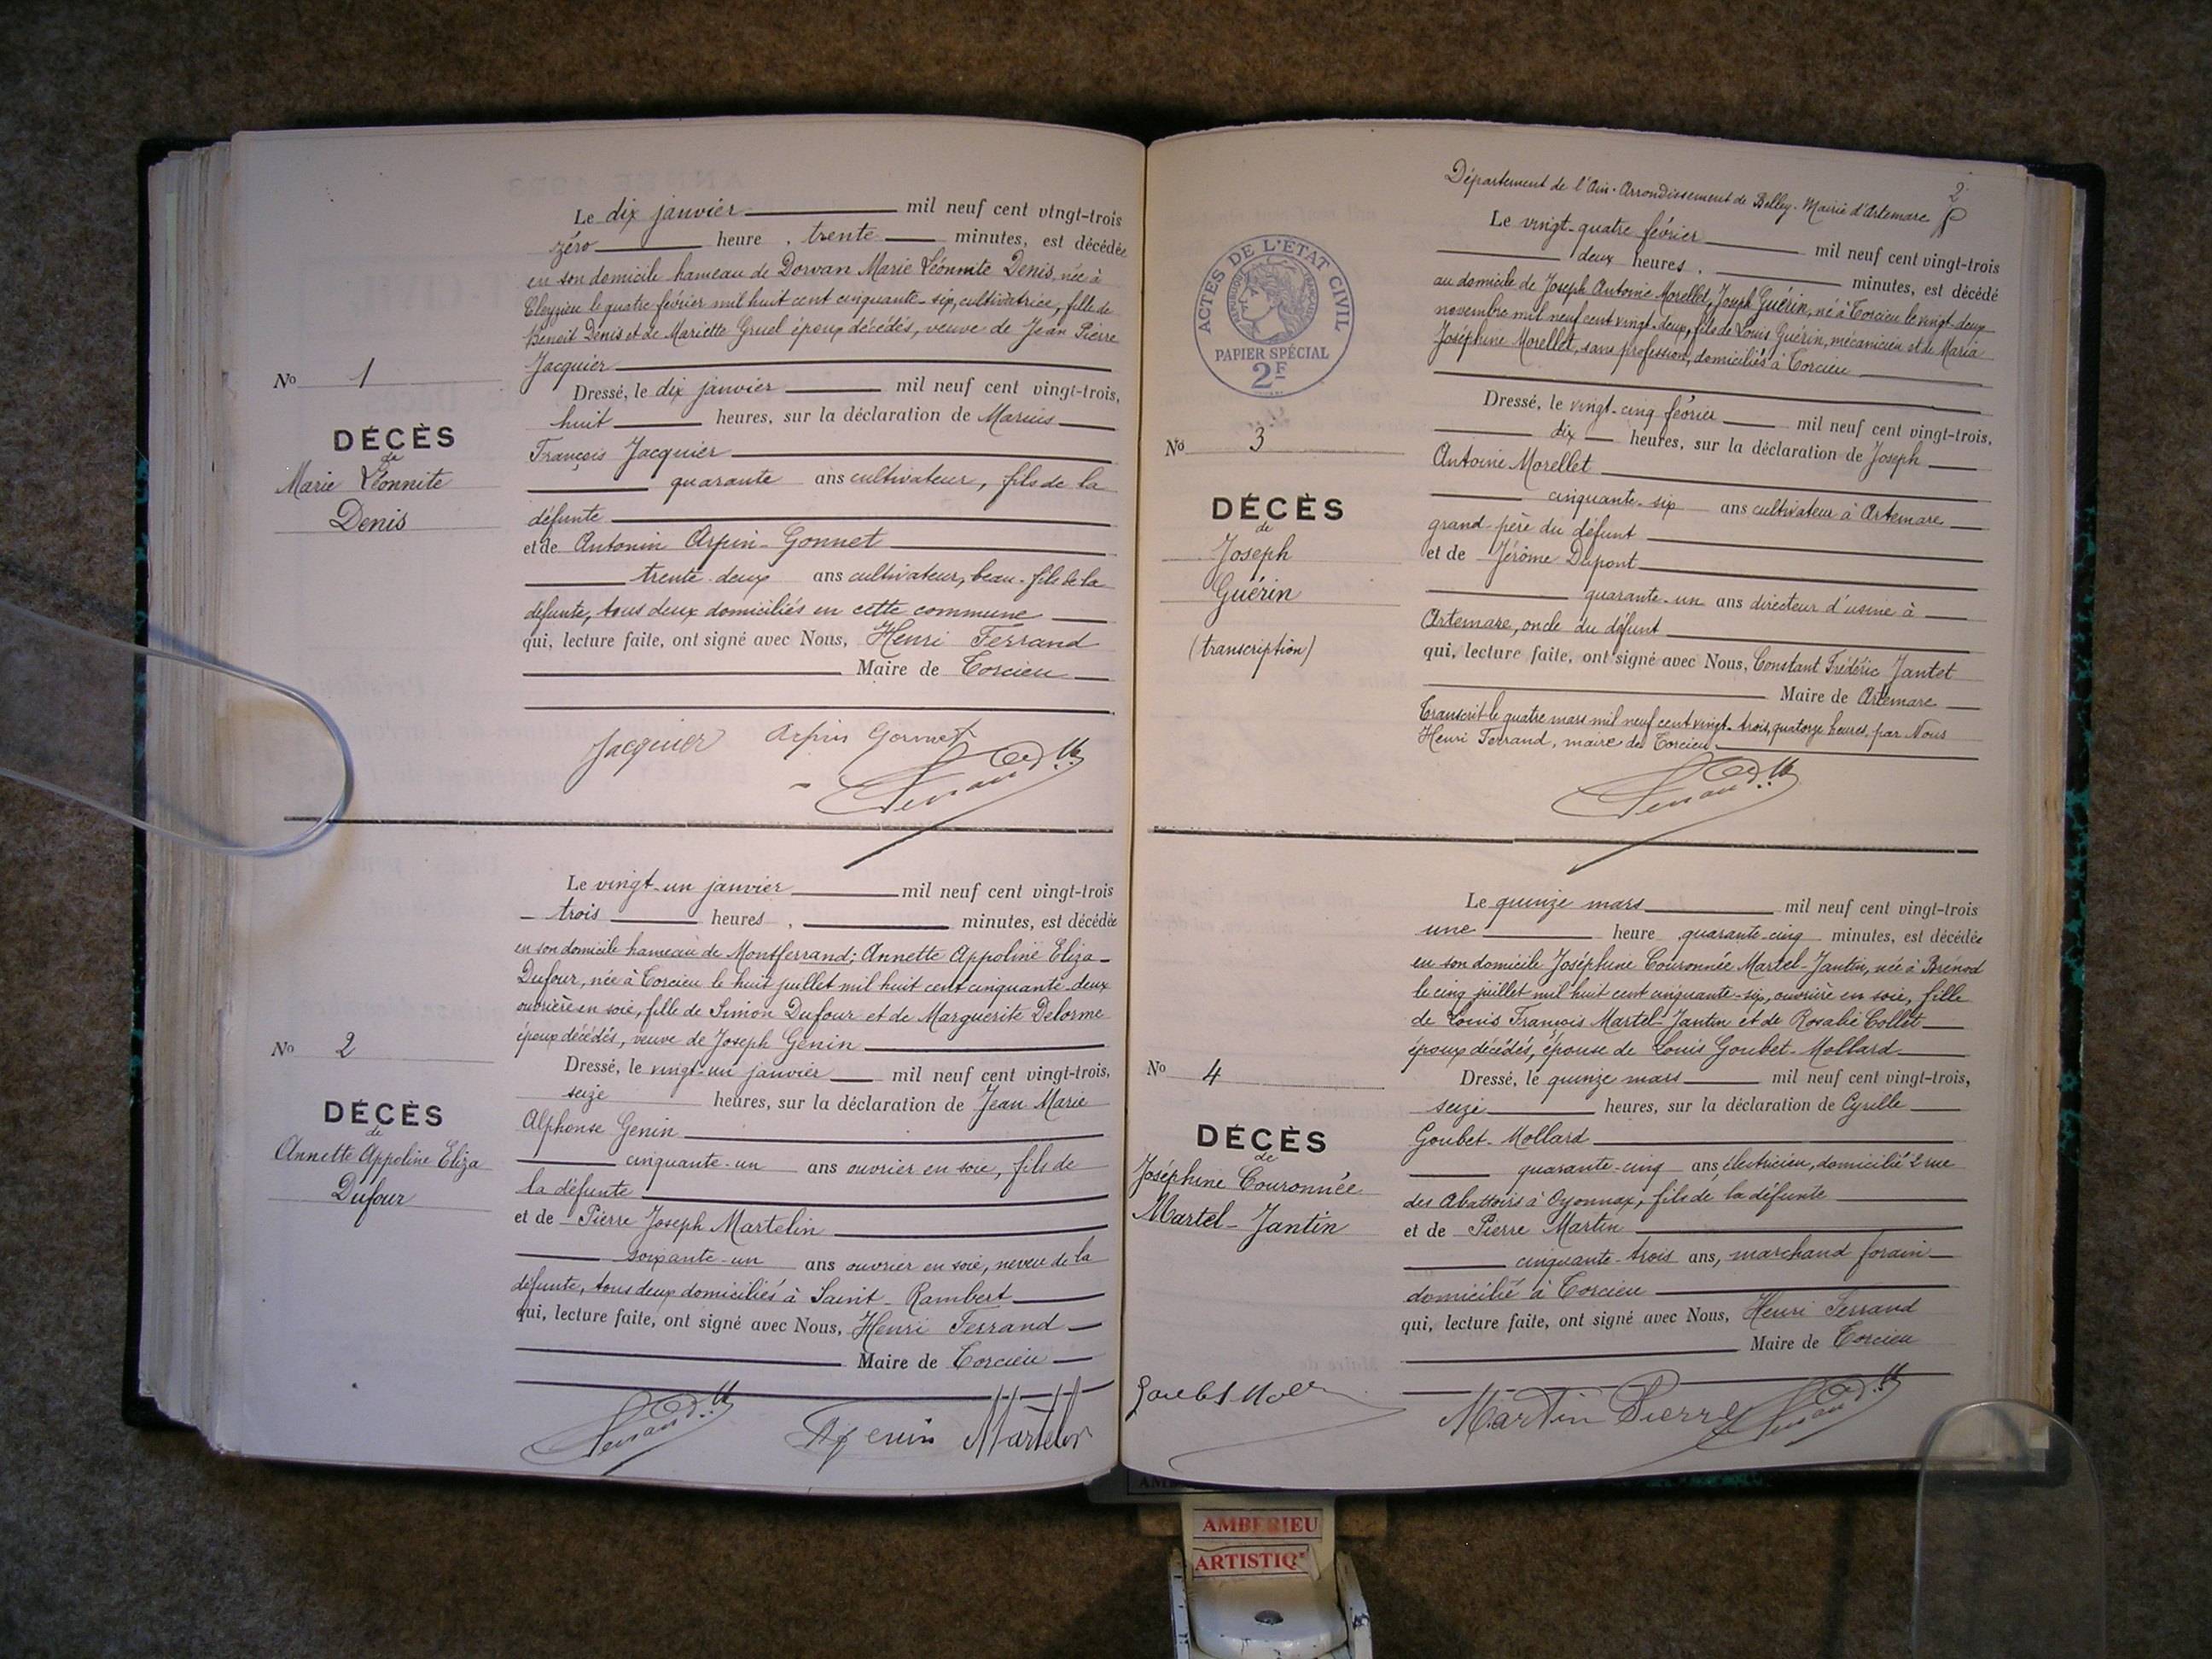 Le dix janvier mil neuf cent vingt-trois
zéro heure, trente minutes, est décédée
en son domicile hameau de Dorvan Marie Léonnite Denis, née à
Cleyzieu le quatre février mil huit cent cinquante-six, cultivatrice, fille de
Benoit Denis et de Mariette Gruel époux décédés, veuve de Jean Pierre
Jacquier
Nº 1
DÉCÈS
de
Marie Léonnite
Denis
Dressé, le dix janvier mil neuf cent vingt-trois,
huit heures, sur la déclaration de Marius
François Jacquier
quarante ans cultivateur, fils de la
défunte
et de Antonin Arpin-Gonnet
trente-deux ans cultivateur, beau-fils de la
défunte, tous deux domiciliés en cette commune
qui, lecture faite, ont signé avec Nous, Henri Ferrand
Maire de Torcieu
Jacquier Arpin Gonnet
Ferrand
Le vingt-un janvier mil neuf cent vingt-trois
trois heures, minutes, est décédée
en son domicile hameau de Montferrand; Annette Appoline Eliza
Dufour, née à Torcieu le huit juillet mil huit cent cinquante-deux
ouvrière en soie, fille de Simon Dufour et de Marguerite Delorme
époux décédés, veuve de Joseph Genin
Nº 2
DÉCÈS
de
Annette Appoline Eliza
Dufour
Dressé, le vingt-un janvier mil neuf cent vingt-trois,
seize heures, sur la déclaration de Jean Marie
Alphonse Genin
cinquante-un ans ouvrier en soie, fils de
la défunte
et de Pierre Joseph Martelin
soixante-un ans ouvrier en soie, neveu de la
défunte, tous deux domiciliés à Saint-Rambert
qui, lecture faite, ont signé avec Nous, Henri Ferrand
Maire de Torcieu
Ferrand Genin Martelin
Département de l'Ain. Arrondissement de Belley. Mairie d'Artemare
2
ACTES DE L'ETAT CIVIL
REPUBLIQUE FRANÇAISE
PAPIER SPÉCIAL
2F
Le vingt-quatre février mil neuf cent vingt-trois
deux heures, minutes, est décédé
au domicile de Joseph Antoine Morellet, Joseph Guérin, né à Torcieu le vingt-deux
novembre mil neuf cent vingt-deux, fils de Louis Guérin, mécanicien et de Maria
Joséphine Morellet, sans profession, domiciliés à Torcieu
Nº 3
DÉCÈS
de
Joseph
Guérin
(transcription)
Dressé, le vingt-cinq février mil neuf cent vingt-trois,
dix heures, sur la déclaration de Joseph
Antoine Morellet
cinquante-six ans cultivateur à Artemare
grand-père du défunt
et de Jérôme Dupont
quarante-un ans directeur d'usine à
Artemare, oncle du défunt
qui, lecture faite, ont signé avec Nous, Constant Frédéric Jantet
Maire de Artemare
Transcrit le quatre mars mil neuf cent vingt-trois, quatorze heures, par Nous
Henri Ferrand, maire de Torcieu
Ferrand
Le quinze mars mil neuf cent vingt-trois
une heure quarante-cinq minutes, est décédée
en son domicile Joséphine Couronnée Martel-Jantin, née à Brénod
le cinq juillet mil huit cent cinquante-six, ouvrière en soie, fille
de Louis François Martel-Jantin et de Rosalie Collet
époux décédés, épouse de Louis Goubet-Mollard
Nº 4
DÉCÈS
de
Joséphine Couronnée
Martel-Jantin
Dressé, le quinze mars mil neuf cent vingt-trois,
seize heures, sur la déclaration de Cyrille
Goubet-Mollard
quarante-cinq ans électricien, domicilié 2 rue
des Abattoirs à Oyonnax, fils de la défunte
et de Pierre Martin
cinquante-trois ans, marchand forain
domicilié à Torcieu
qui, lecture faite, ont signé avec Nous, Henri Ferrand
Maire de Torcieu
Martin Pierre Ferrand
AMBERIEU
ARTISTIQ